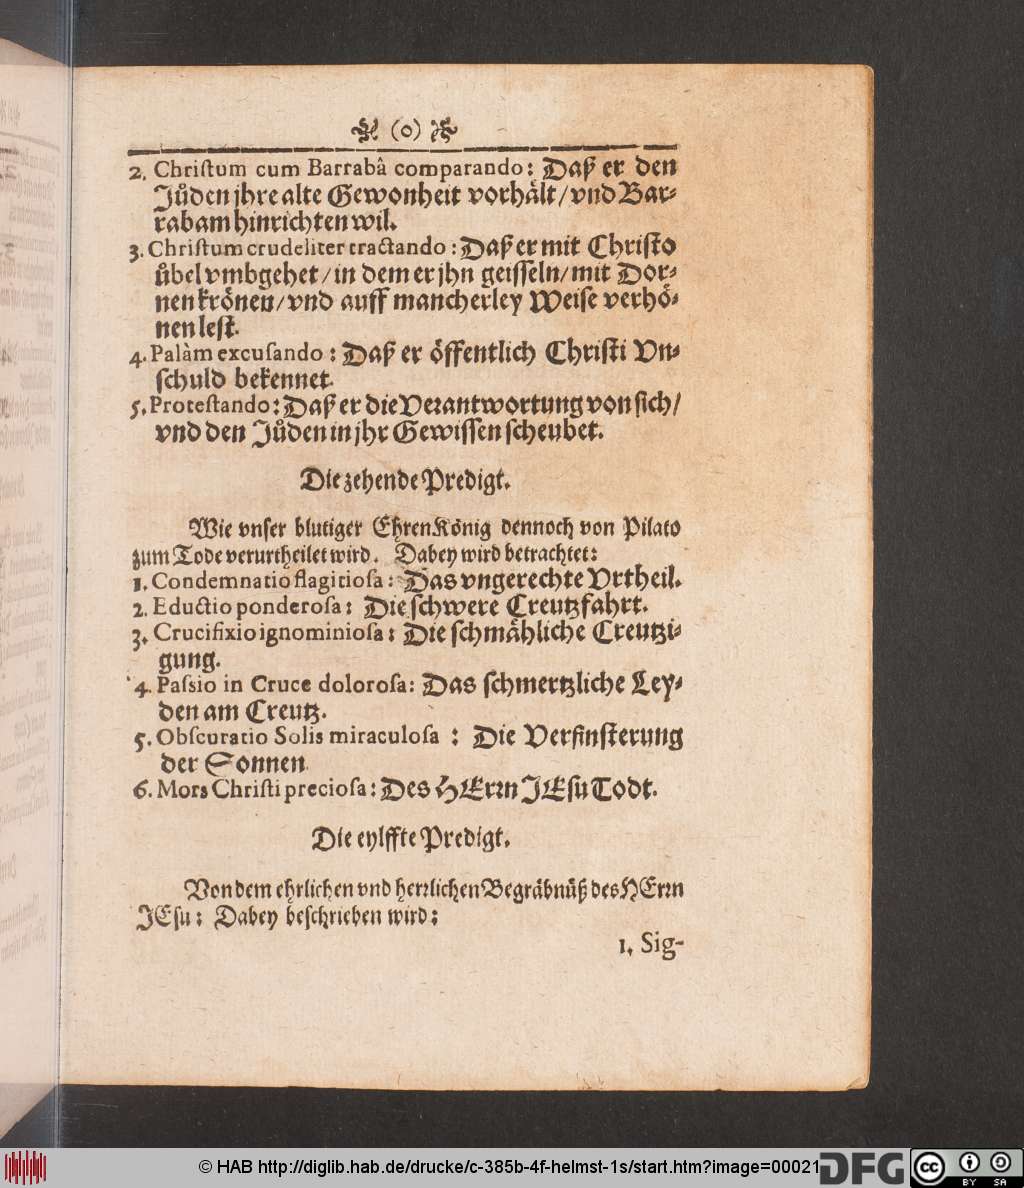 (o)
2. Chriſtum cum Barrabâ comparando: Daß er den
Juͤden jhre alte Gewonheit vorhaͤlt/ vnd Bar-
rabam hinrichten wil.
3. Chriſtum crudeliter tractando: Daß er mit Chriſto
uͤbel vmbgehet/ in dem er jhn geiſſeln/ mit Dor-
nen kroͤnen/ vnd auff mancherley Weiſe verhoͤ-
nen leſt.
4. Palàm excuſando: Daß er oͤffentlich Chriſti Vn-
ſchuld bekennet.
5. Proteſtando: Daß er die Verantwortung von ſich/
vnd den Juͤden in jhr Gewiſſen ſcheubet.
Die zehende Predigt.
Wie vnſer blutiger EhrenKoͤnig dennoch von Pilato
zum Tode verurtheilet wird. Dabey wird betrachtet:
1. Condemnatio flagitioſa: Das vngerechte Vrtheil.
2. Eductio ponderoſa: Die ſchwere Creutzfahrt.
3. Crucifixio ignominioſa: Die ſchmaͤhliche Creutzi-
gung.
4. Paſsio in Cruce doloroſa: Das ſchmertzliche Ley-
den am Creutz.
5. Obſcuratio Solis miraculoſa: Die Verfinſterung
der Sonnen
6. Mors Chriſti precioſa: Des HErꝛn JEſu Todt.
Die eylffte Predigt.
Von dem ehrlichen vnd herꝛlichen Begraͤbnuͤß des HErꝛn
JEſu: Dabey beſchrieben wird:
1. Sig-
© HAB http://diglib.hab.de/drucke/c-385b-4f-helmst-1s/start.htm?image=00021
DFG
cc BY SA